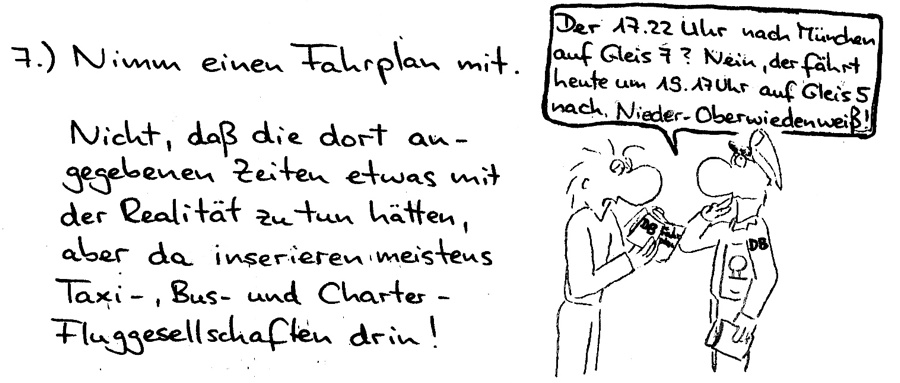 7.) Nimm einen Fahrplan mit.
Nicht, daß die dort an-
gegebenen Zeiten etwas mit
der Realität zu tun hätten,
aber da inserieren meistens
Taxi-, Bus- und Charter-
Fluggesellschaften drin!
Der 17.22 Uhr nach München
auf Gleis 7? Nein, der fährt
heute um 19.17 Uhr auf Gleis 5
nach Nieder-Oberwiedenweiß!
DB
Fahr
plan
DB